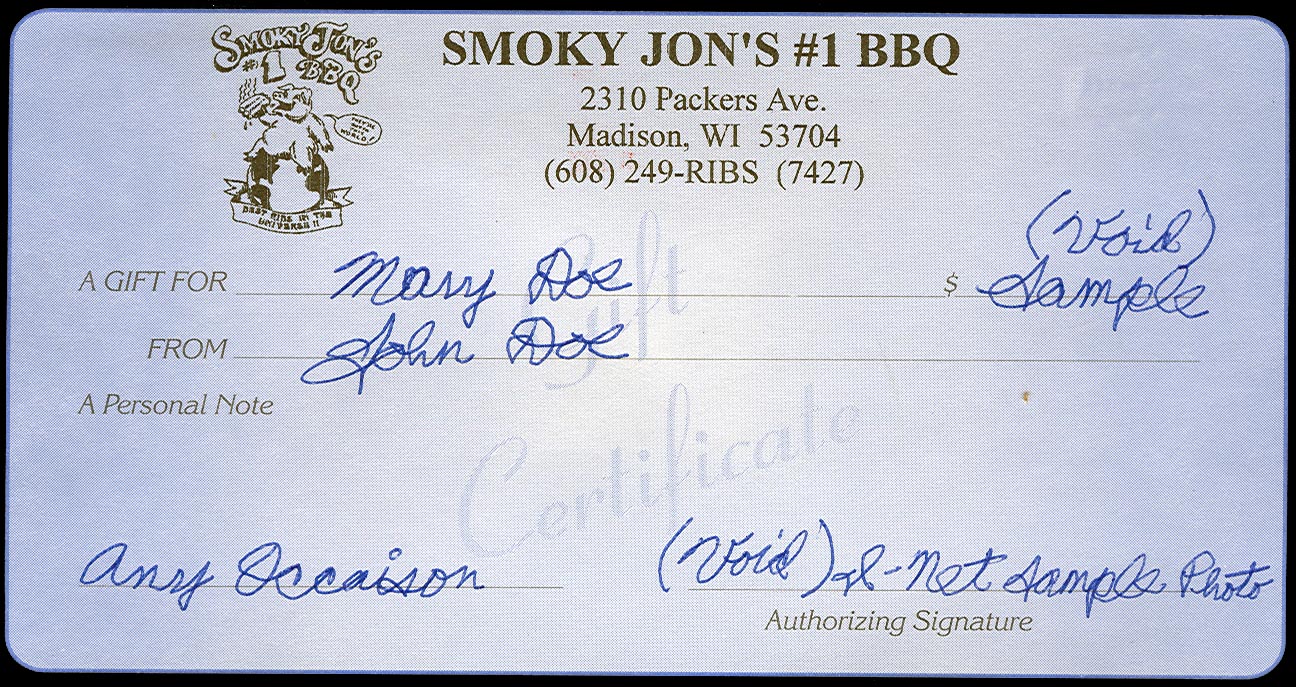 SMOKY JON'S
#1 BBQ
THEY'RE
OUTTA THIS
WORLD!
BEST RIBS IN THE
UNIVERSE!!
SMOKY JON'S #1 BBQ
2310 Packers Ave.
Madison, WI 53704
(608) 249-RIBS (7427)
Gift
Certificate
(Void)
A GIFT FOR Mary Doe $ Sample
FROM John Doe
A Personal Note
Any Occaison (Void) I-Net Sample Photo
Authorizing Signature